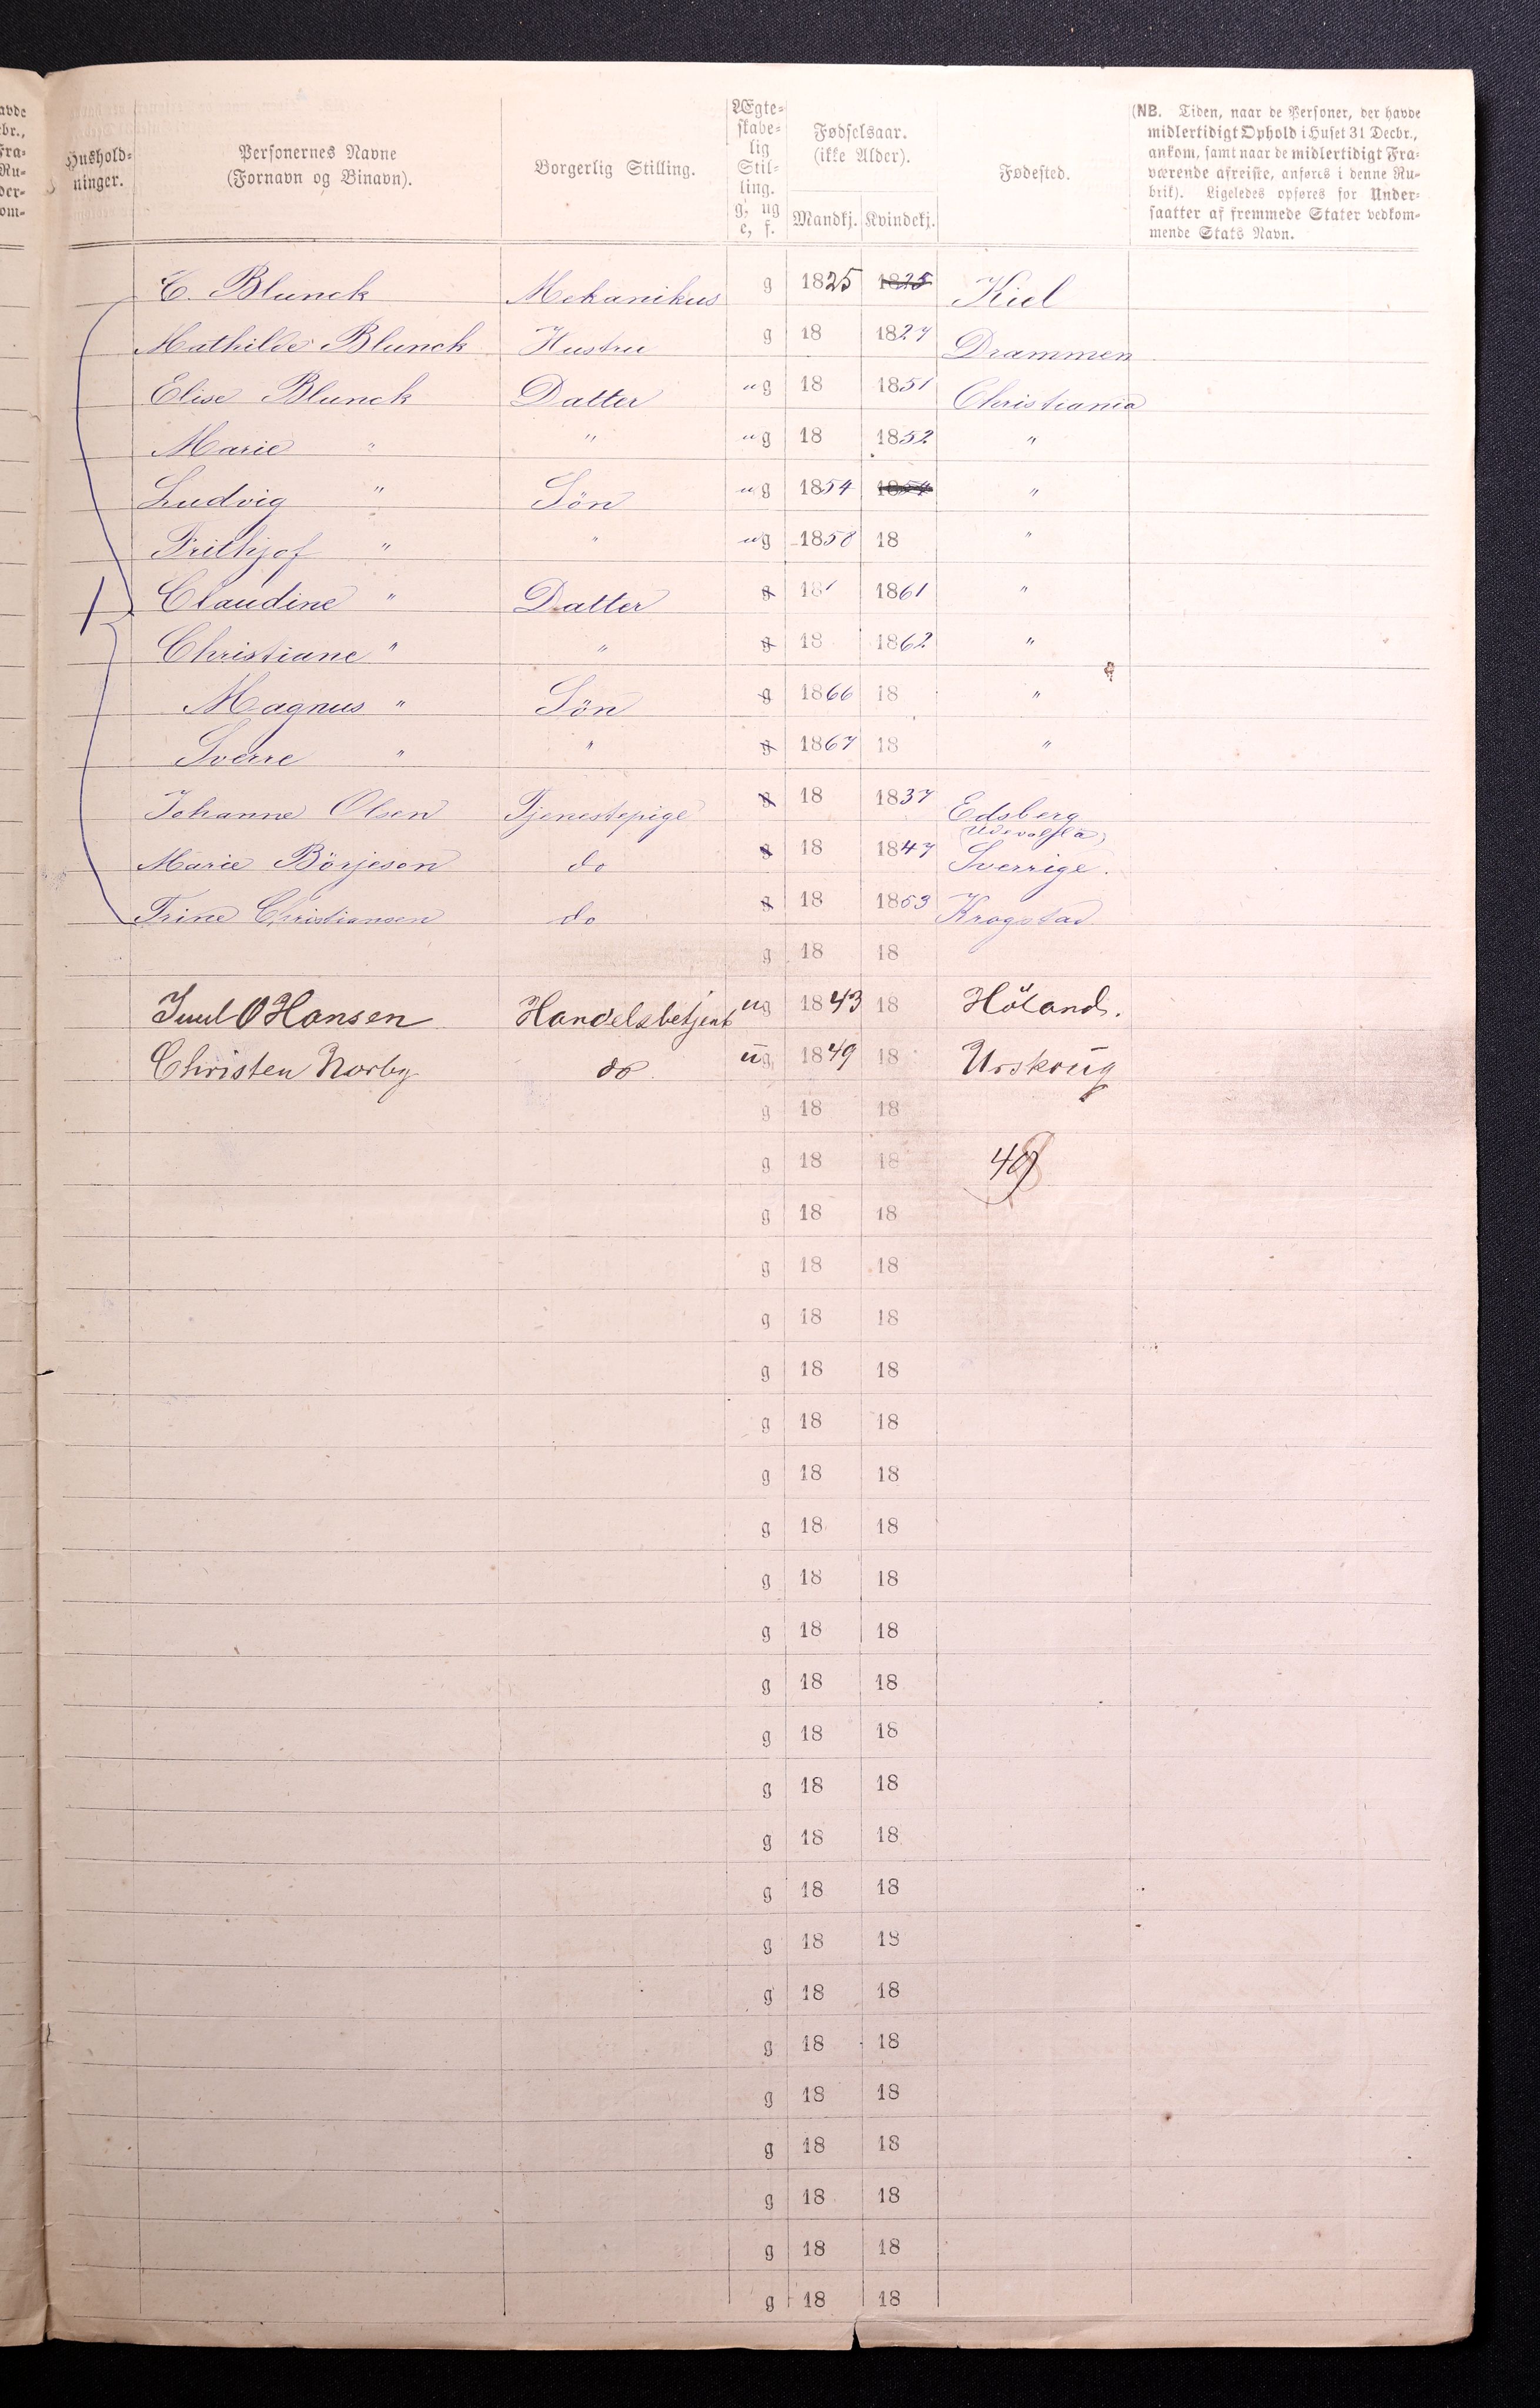 Hushold-
ninger.
Personernes Navne
(Fornavn og Binavn).
Borgerlig Stilling.
Ægte-
skabe-
lig
Stil-
ling.
g, ug
e, f.
Fødselsaar.
(ikke Alder).
Mandkj. Kvindekj.
Fødested.
(NB. Tiden, naar de Personer, der havde
midlertidigt Ophold i Huset 31 Decbr.,
ankom, samt naar de midlertidigt Fra-
værende afreiste, anføres i denne Ru-
brik). Ligeledes opføres for Under-
saatter af fremmede Stater vedkom-
mende Stats Navn.
C. Blunck Mekanikus g 1825 1825 Kiel
Mathilde Blunck Hustru g 18 1827 Drammen
Elise Blunck Datter ug 18 1851 Christiania
Marie " " ug 18 1852 "
Ludvig " Sön ug 1854 1854 "
Frithjof " " ug 1858 18 "
1 Claudine " Datter g 18 1861 "
Christiane " " g 18 1862 "
Magnus " Sön g 1866 18 "
Sverre " " g 1867 18 "
Johanne Olsen Tjenestepige g 18 1837 Edsberg
Marie Börjeson do g 18 1847 Sverrige.
Trine Christiansen do g 18 1853 Krogstad
g 18 18
Juul O Hansen Handelsbetjent ug 1843 18 Höland.
Christen Norby do ug 1849 18 Urskoug
g 18 18
g 18 18 49
g 18 18
g 18 18
g 18 18
g 18 18
g 18 18
g 18 18
g 18 18
g 18 18
g 18 18
g 18 18
g 18 18
g 18 18
g 18 18
g 18 18
g 18 18
g 18 18
g 18 18
g 18 18
g 18 18
g 18 18
g 18 18
g 18 18